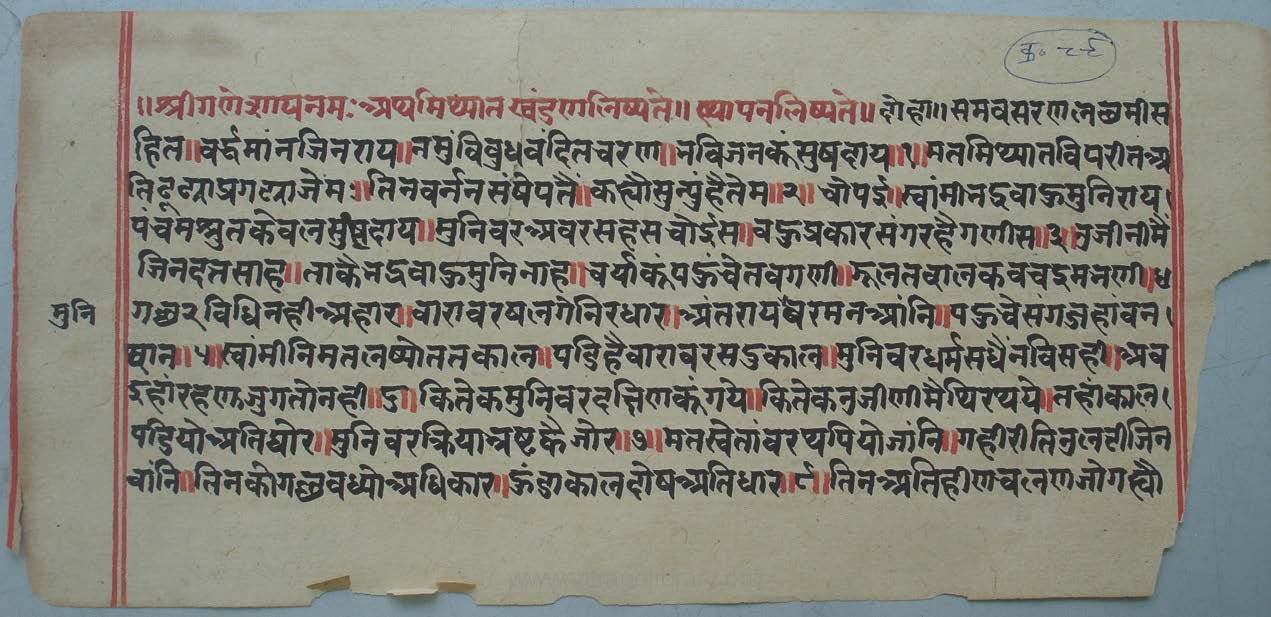 ॥श्रीगणेशायनमः अथमिथ्यातखंडणलिष्यते॥ स्थापनलिष्यते॥ दोहा॥ समवसरणलछमीस
हित॥वर्द्धमांनजिनराय॥नमुंविबुधवंदितचरण॥भविजनकूंसुषदाय॥१॥मतमिथ्यातविपरीतअ
तिढूंढ्याप्रगट्याजेमः॥तिनवर्ननसंषेपतै॥कह्यौसुन्युंहैतेम॥२॥चौपई॥स्वांमीभद्रबाहुमुनिराय।
पंचमश्रुतकेवलसुंषदाय॥मुनिवरअवरसहसचोईस॥बहुप्रकारसंगरहैगणीस॥३॥नुजीनीमैं
जिनदतसाह॥ताकैभद्रबाहुमुनिनाह॥चर्याकूंपहुंचेतवगणी॥झूलतबालकबचइमभणी॥४
मुनि
गछ२विधिनहीअहार॥बाराबरषलगेनिरधार॥अंतरायषेरमनआंनि॥पहुचेसंगजहांबन।
थान॥५॥स्वांमीनिमतलष्योततकाल॥पडिहैबाराबरसदुकाल॥मुनिवरधर्मसधैनविसही॥अब
इहांरहणजुगतोनही॥६॥कितेकमुनिवरदक्षिणकूंगये॥कितेकनुजीणीमैथिरथये॥तहांकाल।
पडियोअतिघोर॥मुनिवरक्रियाभ्रष्टकैजोर॥७॥मतस्वेतांबरथपियोजांनि॥गहीरीतिनुलटीजिन
बांनि॥तिनकोगछबध्योअधिकार॥हूंडाकालदोषअतिधार॥८॥तिनअतिहीणचलणजोगह्यौ